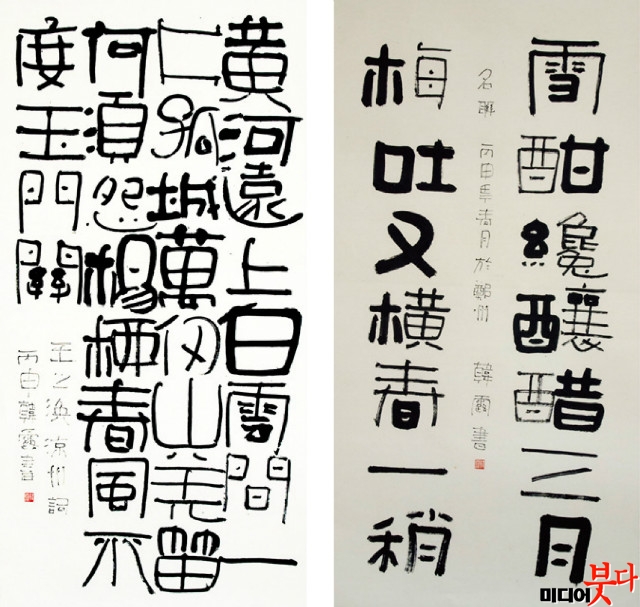 黄河遠上白雲間一
片孤城萬仞山羌笛
何須怨楊柳春風不
度玉門關
王之渙涼州詞
丙申韓霄書
雪酣纔釀醋三月
名聯 丙申年春月於鄭州 韓霄書
梅吐又橫春一稍
미디어붓다